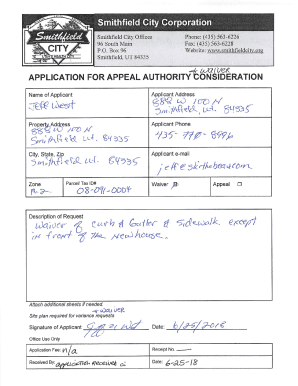 Smithfield City Corporation
Smithfield
CITY
Smithfield City Offices
96 South Main
P.O. Box 96
Smithfield, UT 84335
Phone: (435) 563-6226
Fax: (435) 563-6228
Website: www.smithfieldcity.org
+ WAIVER
APPLICATION FOR APPEAL AUTHORITY CONSIDERATION
Name of Applicant
Jeff West
Applicant Address
888 W 100 N
Smithfield, Ut. 84335
Property Address
888 W 100 N
Smithfield, Ut. 84335
Applicant Phone
435-770-8996
City, State, Zip
Smithfield, Ut. 84335
Applicant e-mail
Zone
Parcel/ Tax ID#
08-091-0004
Waiver
Appeal
Description of Request
Waiver of curb & Gutter & Sidewalk except
in front of the new house.
Attach additional sheets if needed.
+ WAIVER
Site plan required for variance requests
Signature of Applicant
Date: 6/25/2018
Office Use Only
Application Fee: n/a
Receipt No.
Received By:
Date: 6-25-18